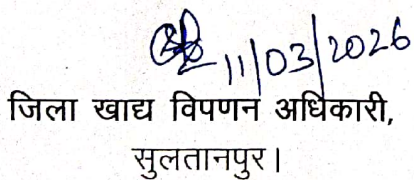 11/03/2026
जिला खाद्य विपणन अधिकारी,
सुलतानपुर।